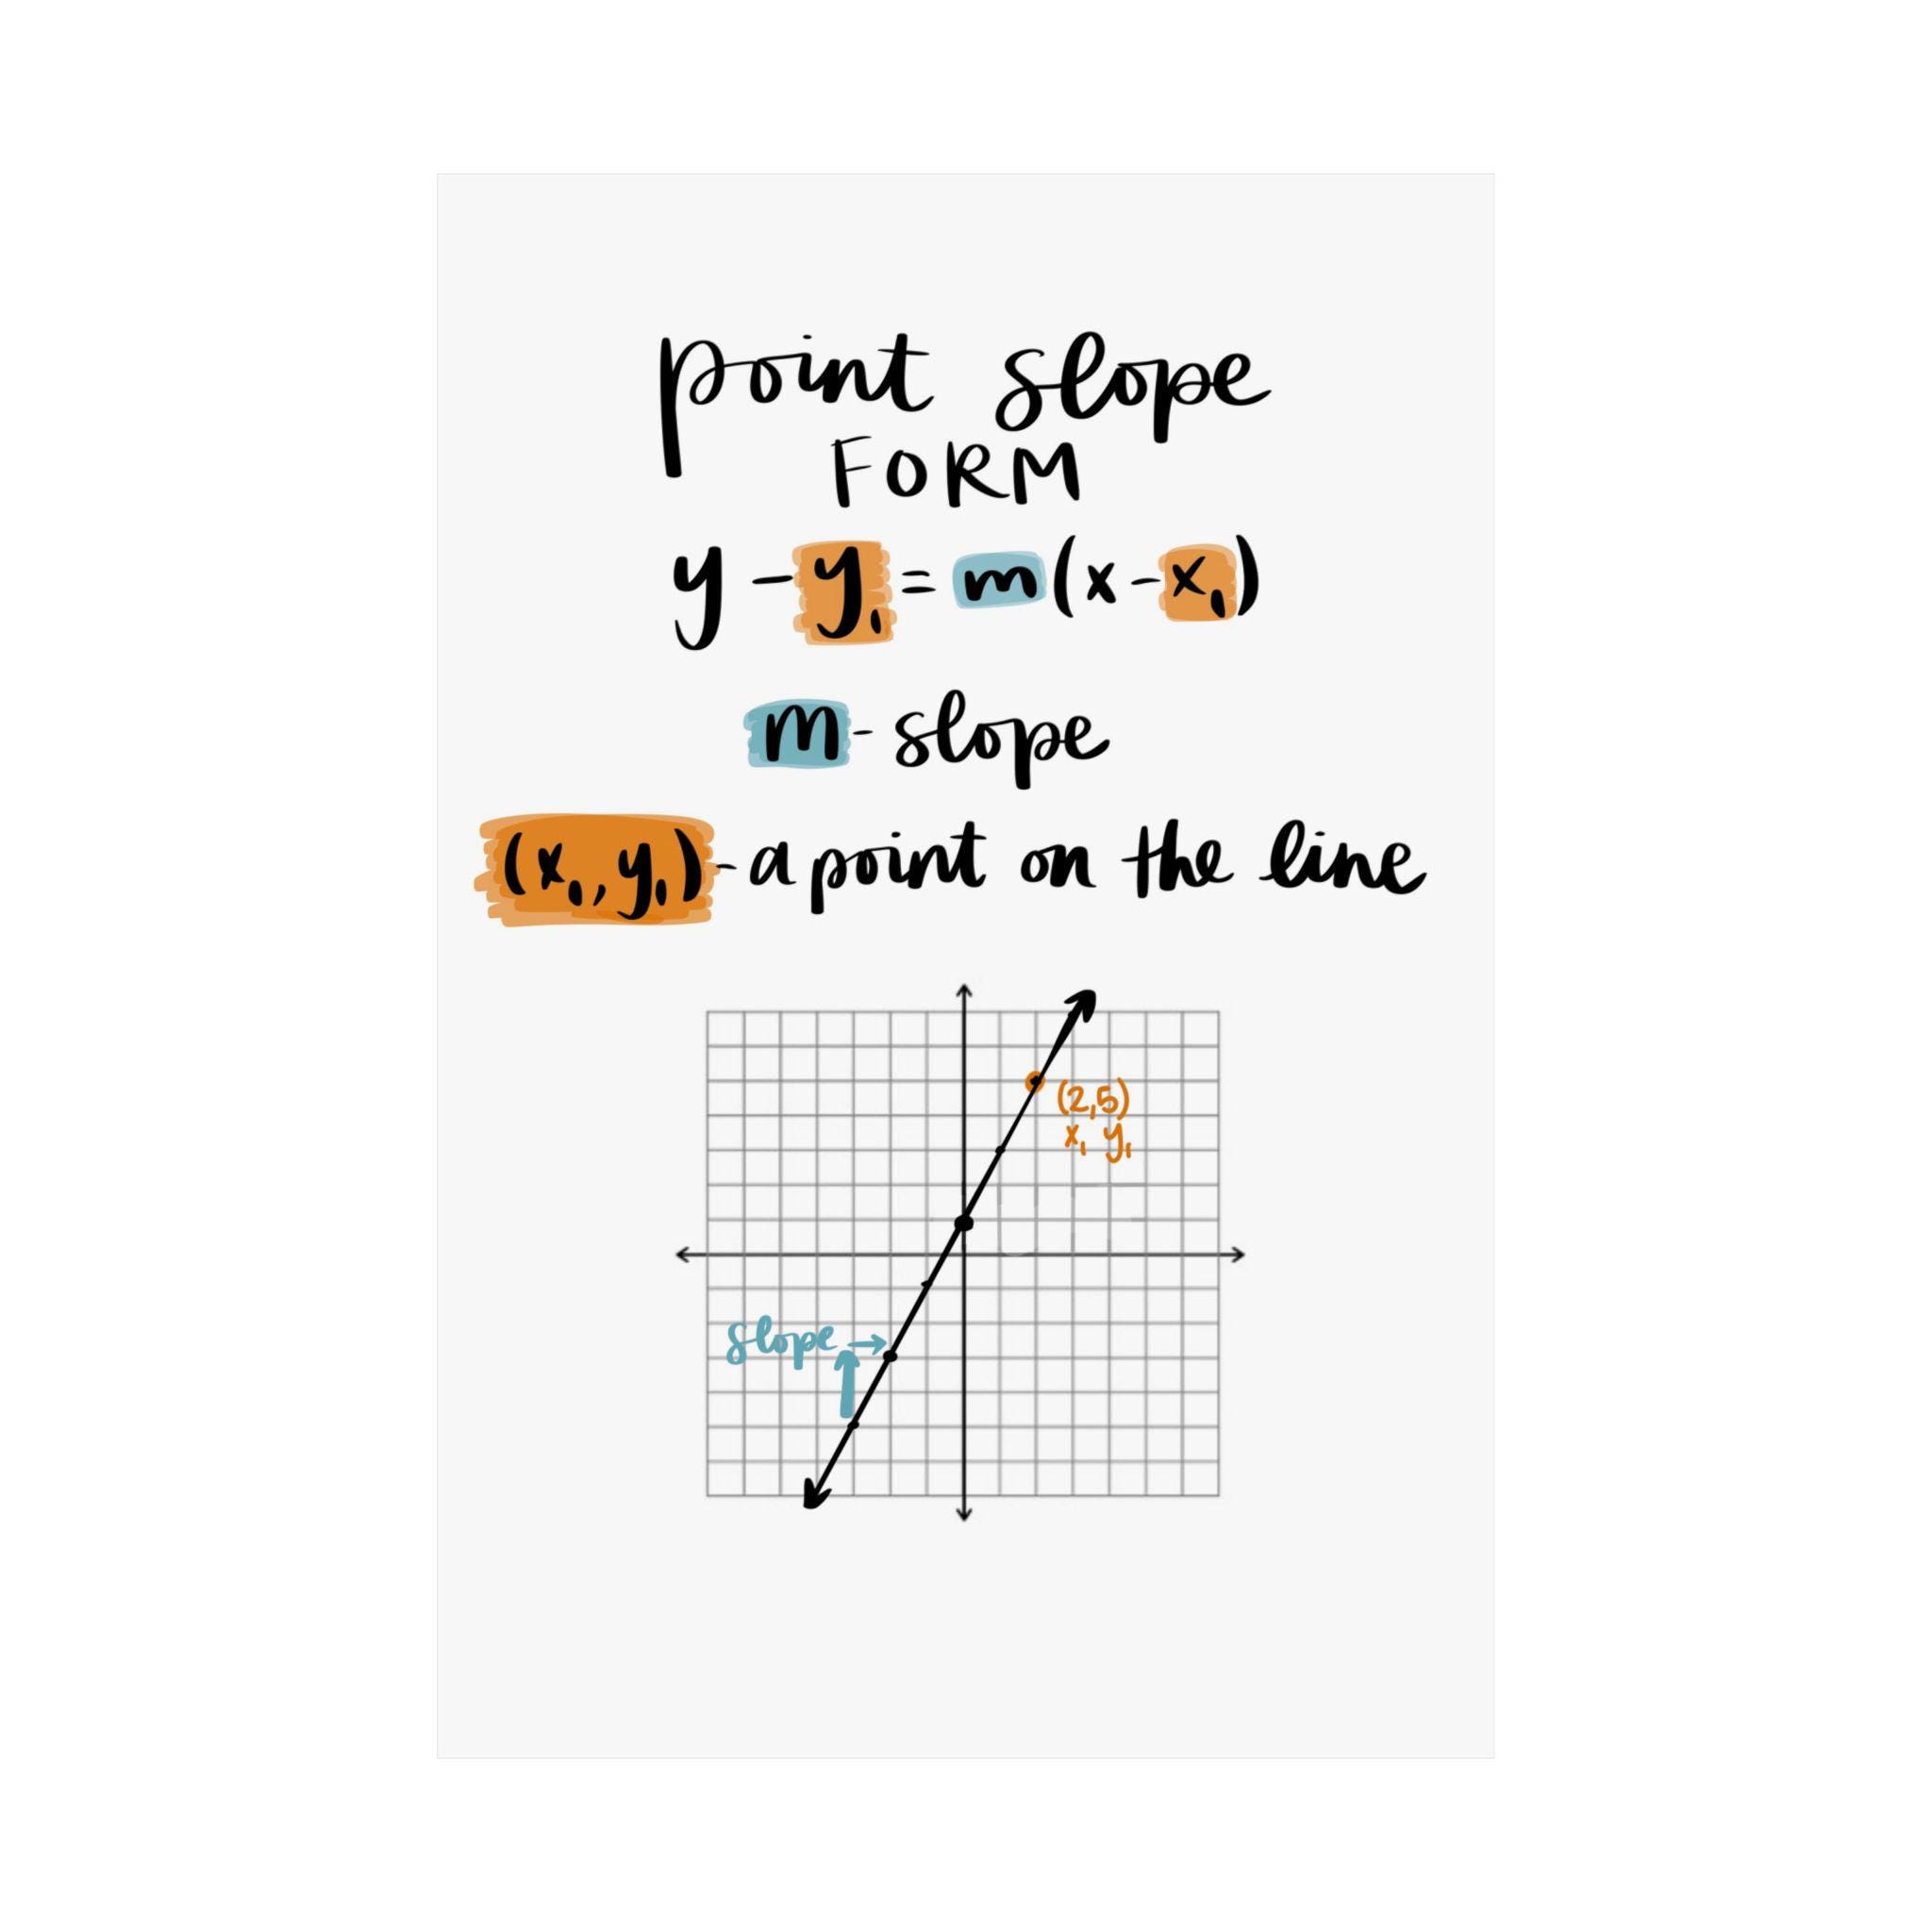 point slope
FORM
y - y₁ = m(x - x₁)
m - slope
(x₁, y₁) - a point on the line
(2,5)
x₁ y₁
slope